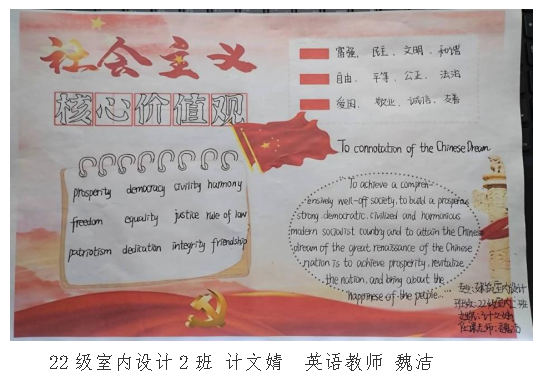 社会主义
核心价值观
富强、民主、文明、和谐
自由、平等、公正、法治
爱国、敬业、诚信、友善
To connotation of the Chinese Dream
prosperity democracy civility harmony
freedom equality justice rule of law
patriotism dedication integrity friendship
To achieve a compreh-
ensively well-off society, to build a prosperous
strong democratic civilized and harmonious
modern socialist country and to attain the Chinese
dream of the great renaissance of the Chinese
nation is to achieve prosperity, revitalize
the nation, and bring about the
happiness of the people...
专业:建筑室内设计
班级:22级室内二班
姓名:计文婧
任课老师:魏洁
22级室内设计2班 计文婧 英语教师 魏洁